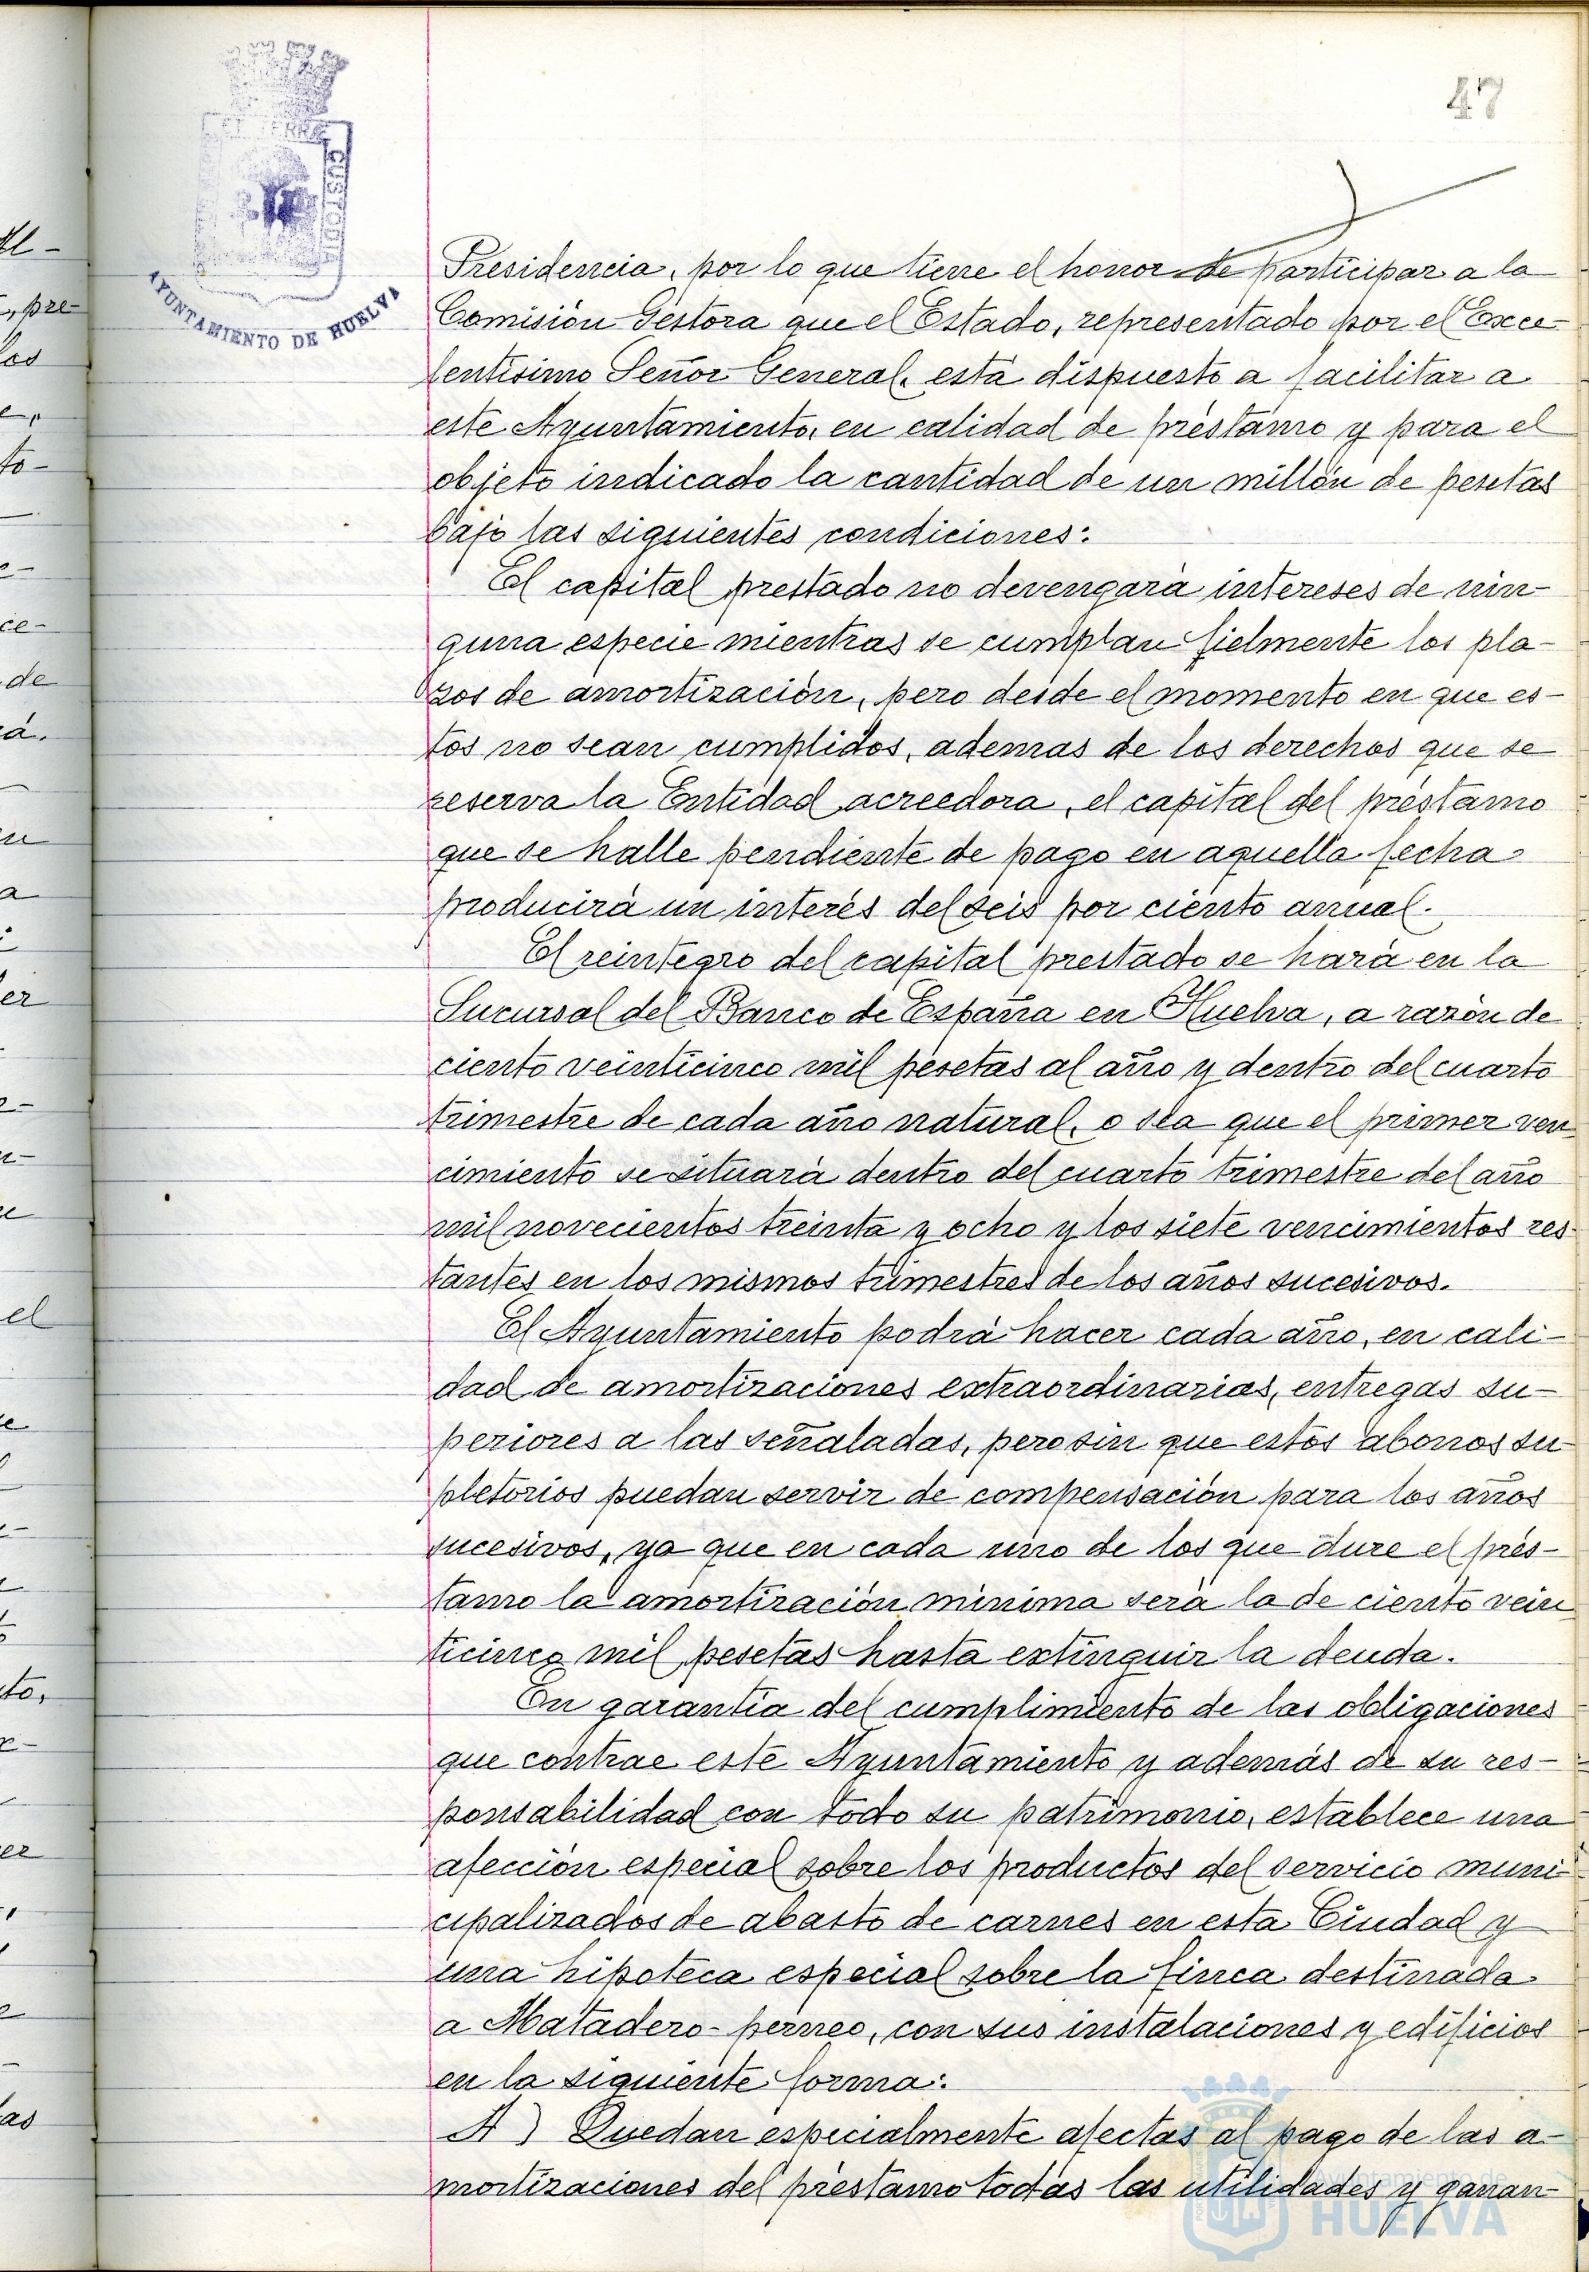 47
PORTUS MARIS ET TERRE CUSTODIA
AYUNTAMIENTO DE HUELVA
Presidencia, por lo que tiene el honor de participar a la
Comisión Gestora que el Estado, representado por el Exce-
lentísimo Señor General, está dispuesto a facilitar a
este Ayuntamiento, en calidad de préstamo y para el
objeto indicado la cantidad de un millón de pesetas
bajo las siguientes condiciones:
El capital prestado no devengará intereses de nin-
guna especie mientras se cumplan fielmente los pla-
zos de amortización, pero desde el momento en que es-
tos no sean cumplidos, ademas de los derechos que se
reserva la Entidad acreedora, el capital del préstamo
que se halle pendiente de pago en aquella fecha
producirá un interés del seis por ciento anual.
El reintegro del capital prestado se hará en la
Sucursal del Banco de España en Huelva, a razón de
ciento veinticinco mil pesetas al año y dentro del cuarto
trimestre de cada año natural, o sea que el primer ven
cimiento se situará dentro del cuarto trimestre del año
mil novecientos treinta y ocho y los siete vencimientos res-
tantes en los mismos trimestres de los años sucesivos.
El Ayuntamiento podrá hacer cada año, en cali-
dad de amortizaciones extraordinarias, entregas su-
periores a las señaladas, pero sin que estos abonos su-
pletorios puedan servir de compensación para los años
sucesivos, ya que en cada uno de los que dure el prés-
tamo la amortización mínima será la de ciento vein
ticinco mil pesetas hasta extinguir la deuda.
En garantía del cumplimiento de las obligaciones
que contrae este Ayuntamiento y además de su res-
ponsabilidad con todo su patrimonio, establece una
afección especial sobre los productos del servicio muni-
cipalizados de abasto de carnes en esta Ciudad y
una hipoteca especial sobre la finca destinada
a Matadero-perneo, con sus instalaciones y edificios
en la siguiente forma:
A) Quedan especialmente afectas al pago de las a-
mortizaciones del préstamo todas las utilidades y ganan-
Ayuntamiento de
HUELVA